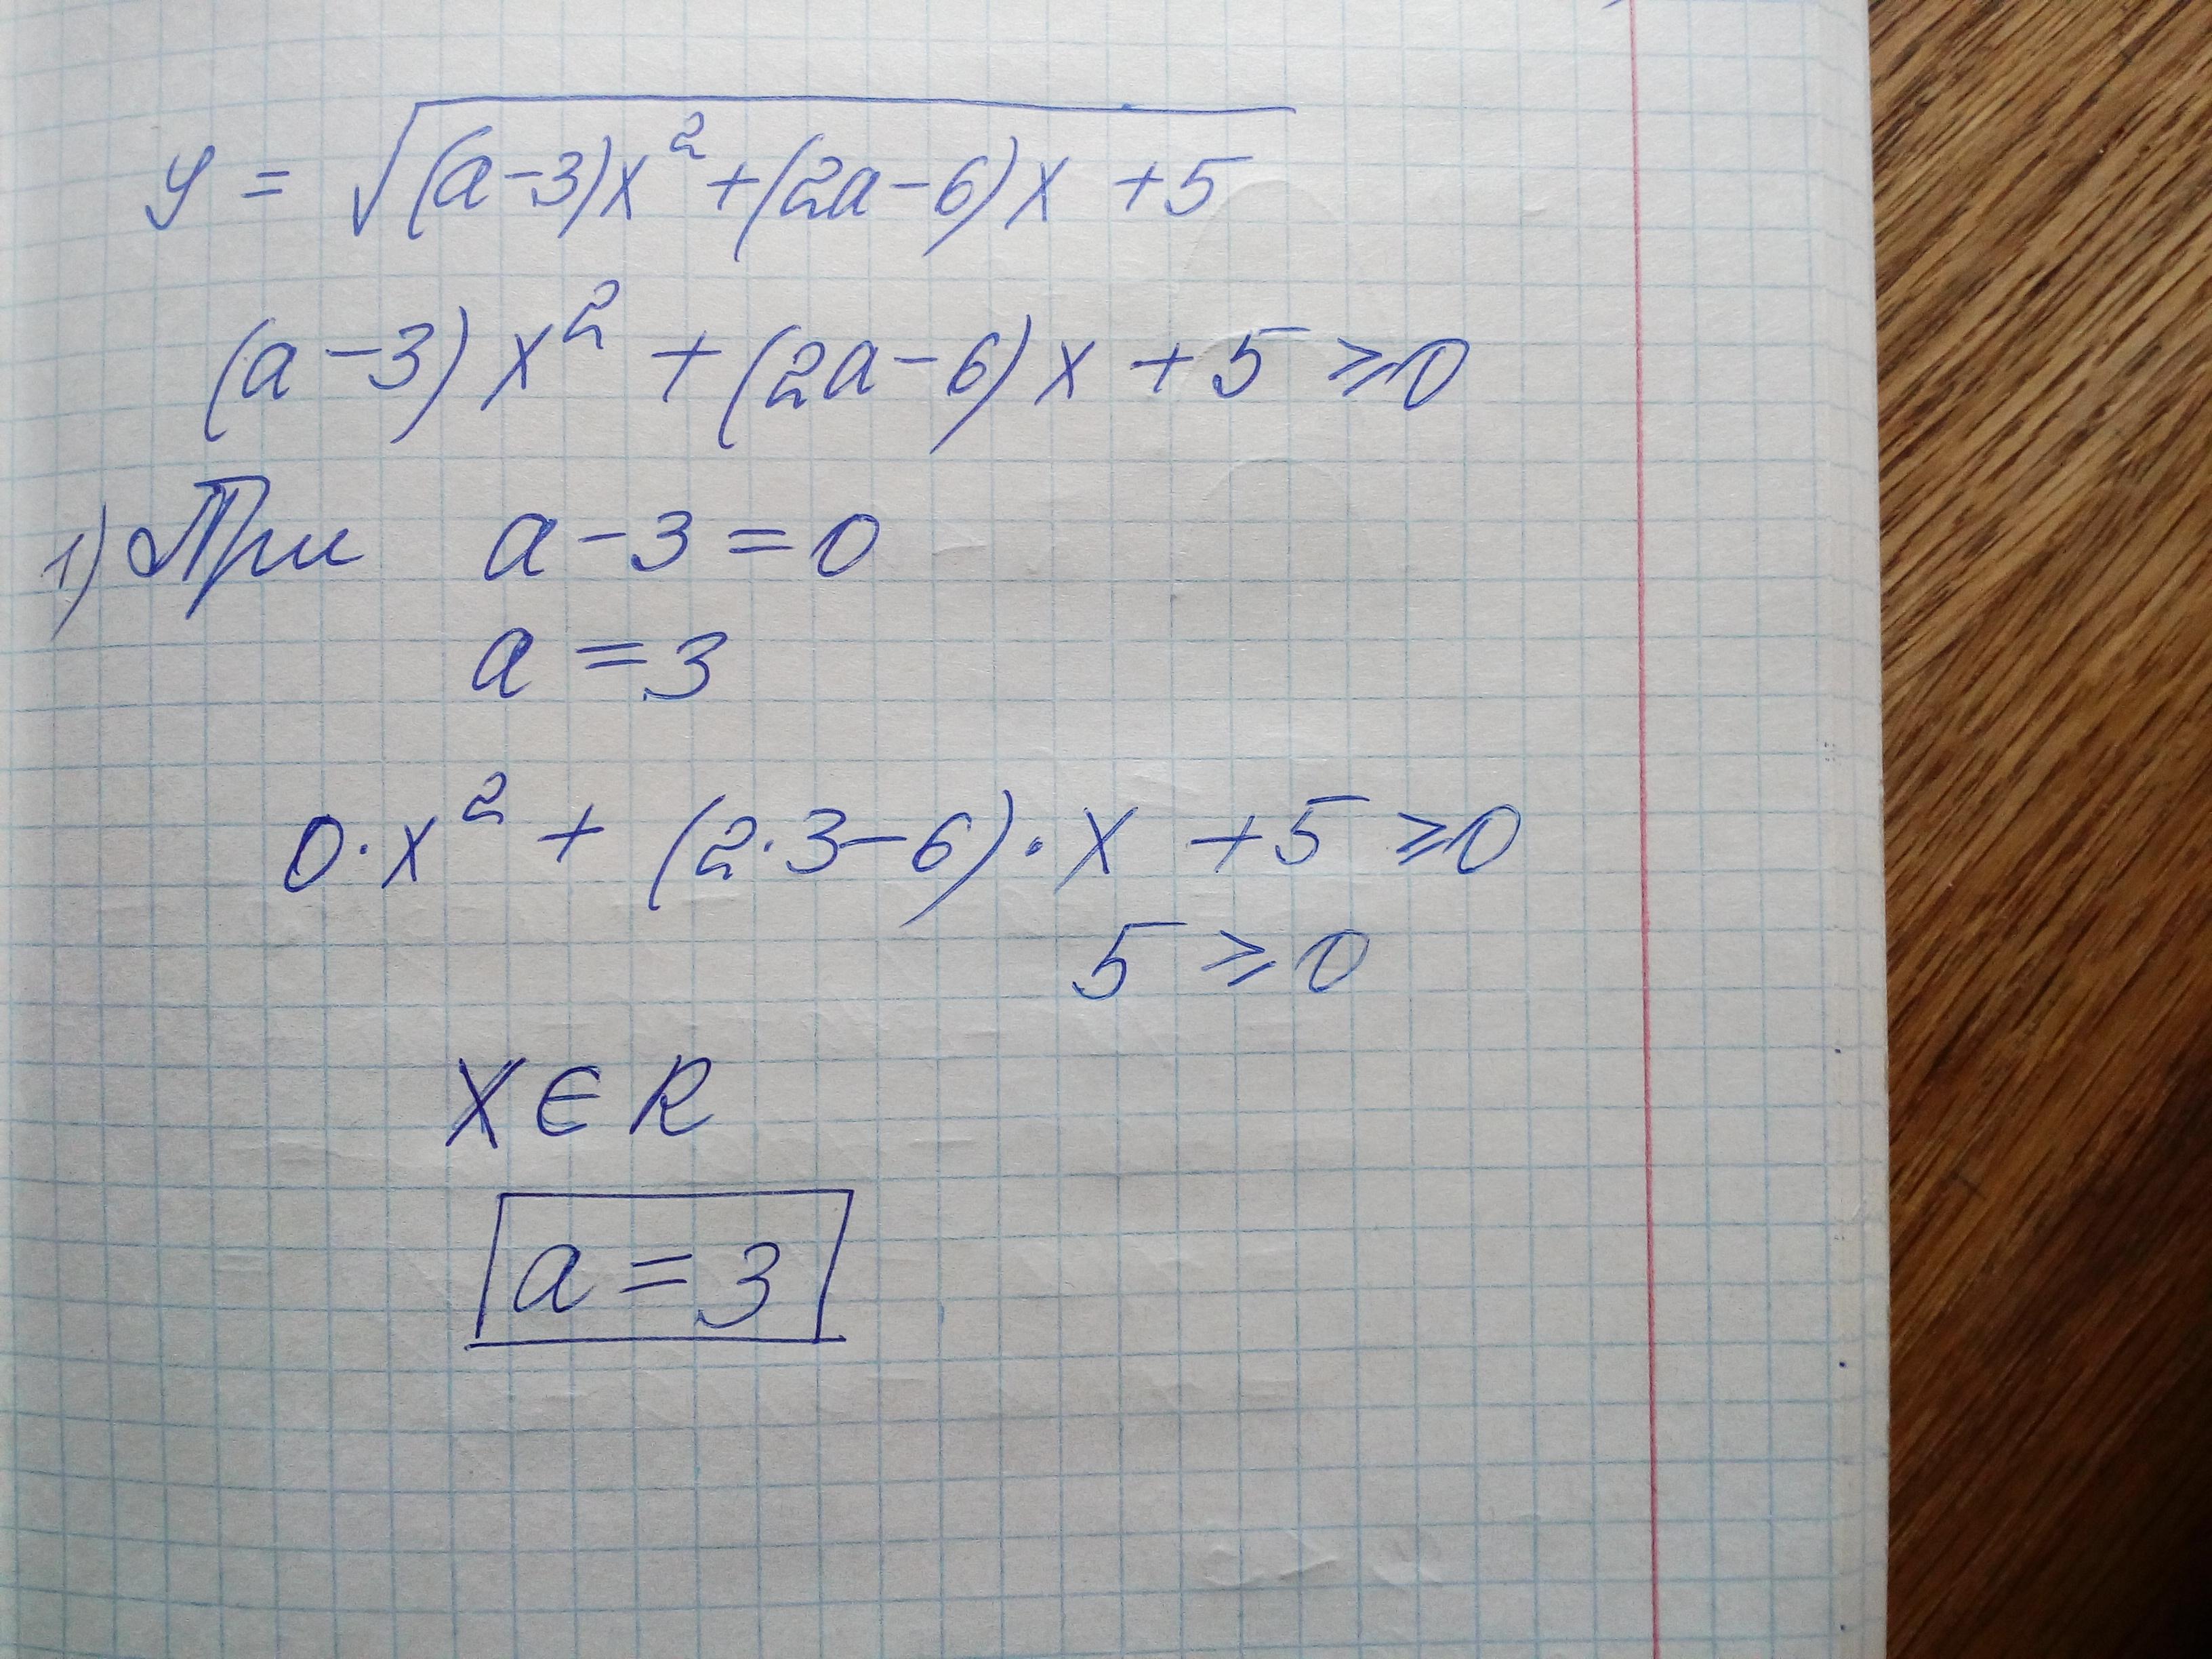 y = √(a-3)x² + (2a-6)x + 5
(a-3)x² + (2a-6)x + 5 ⩾ 0
1) При a - 3 = 0
a = 3
0·x² + (2·3-6)·x + 5 ⩾ 0
5 ⩾ 0
x ∈ R
a = 3